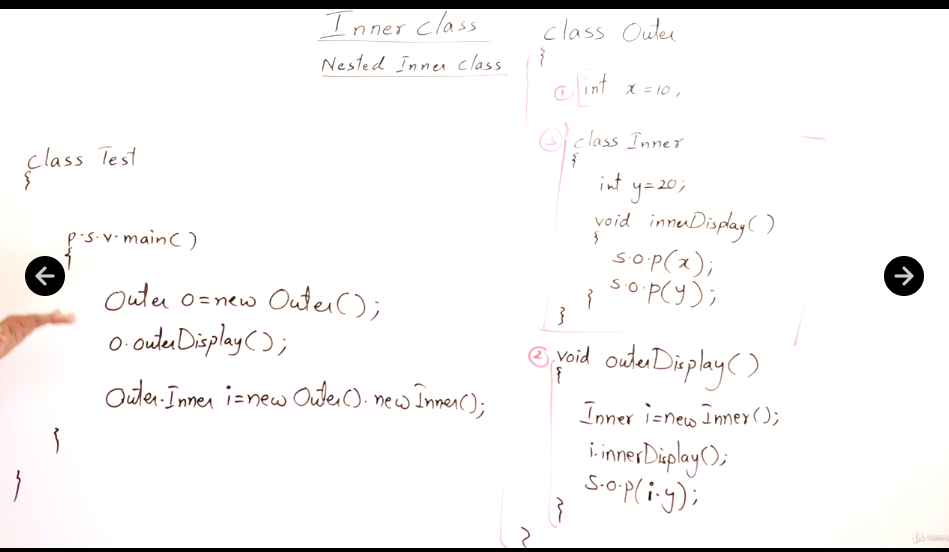 Inner class
Nested Inner class
class Test
{
p.s.v.main()
{
Outer o=new Outer();
o.outerDisplay();
Outer.Inner i=new Outer().new Inner();
}
}
class Outer
{
① int x=10;
③ class Inner
{
int y=20;
void innerDisplay()
{
s.o.p(x);
s.o.p(y);
}
}
② void outerDisplay()
{
Inner i=new Inner();
i.innerDisplay();
s.o.p(i.y);
}
}